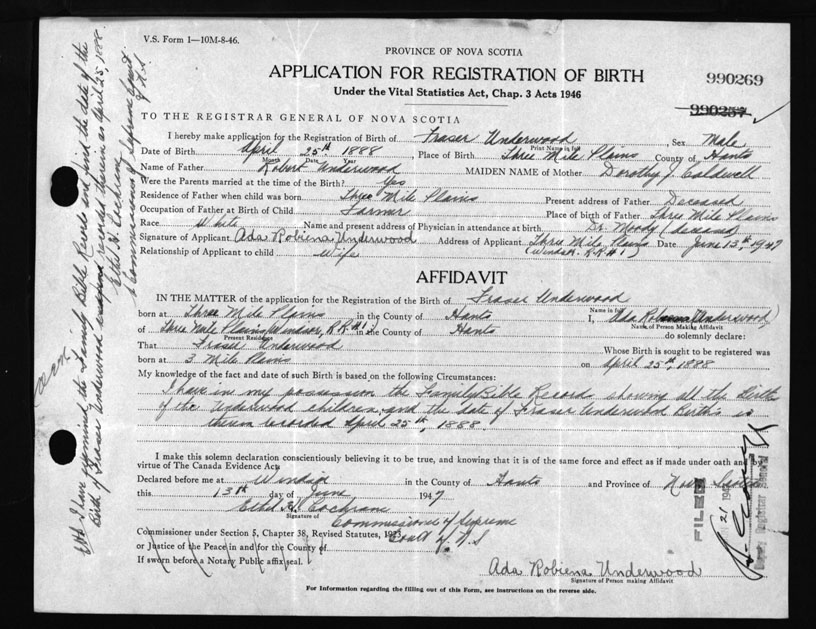 V.S. Form 1—10M-8-46.
PROVINCE OF NOVA SCOTIA
APPLICATION FOR REGISTRATION OF BIRTH
Under the Vital Statistics Act, Chap. 3 Acts 1946
990269
990257
TO THE REGISTRAR GENERAL OF NOVA SCOTIA
I hereby make application for the Registration of Birth of Fraser Underwood, Sex Male
Print Name in full
Date of Birth April 25th 1888, Place of Birth Three Mile Plains County of Hants
Month Date Year
Name of Father Robert Underwood MAIDEN NAME of Mother Dorothy J. Caldwell
Were the Parents married at the time of Birth? Yes
Residence of Father when child was born Three Mile Plains Present address of Father Deceased
Occupation of Father at Birth of Child Farmer Place of birth of Father Three Mile Plains
Race White Name and present address of Physician in attendance at birth Dr. Moody (deceased)
Signature of Applicant Ada Robiena Underwood Address of Applicant Three Mile Plains Date June 13th, 1947
(Windsor, R.R.#1)
Relationship of Applicant to child Wife
AFFIDAVIT
IN THE MATTER of the application for the Registration of the Birth of Fraser Underwood
Name in full
born at Three Mile Plains in the County of Hants I, Ada Robiena Underwood
Name of Person Making Affidavit
of Three Mile Plains, Windsor, R.R.#1 in the County of Hants do solemnly declare:
Present Residence
That Fraser Underwood Whose Birth is sought to be registered was
born at 3 Mile Plains on April 25th, 1888
My knowledge of the fact and date of such Birth is based on the following Circumstances:
I have in my possession the Family Bible Record showing all the Births
of the Underwood children, and the date of Fraser Underwood Birth is
therein recorded April 25th, 1888
I make this solemn declaration conscientiously believing it to be true, and knowing that it is of the same force and effect as if made under oath and by
virtue of The Canada Evidence Act
Declared before me at Windsor in the County of Hants and Province of Nova Scotia
this 13th day of June 1947
Ethel H. Cochrane
Signature of
Commissioner of Supreme
Commissioner under Section 5, Chapter 38, Revised Statutes, 1923 Court of N.S
or Justice of the Peace in and for the County of
If sworn before a Notary Public affix seal.
Ada Robiena Underwood
Signature of Person making Affidavit
For Information regarding the filling out of this Form, see instructions on the reverse side.
FILED
21
Deputy Registrar General
I examined the Family Bible Records and find the date of the
Birth of Fraser Underwood recorded therein as April 25, 1888.
Ethel H. Cochrane
A Commissioner of Supreme Court
of N.S